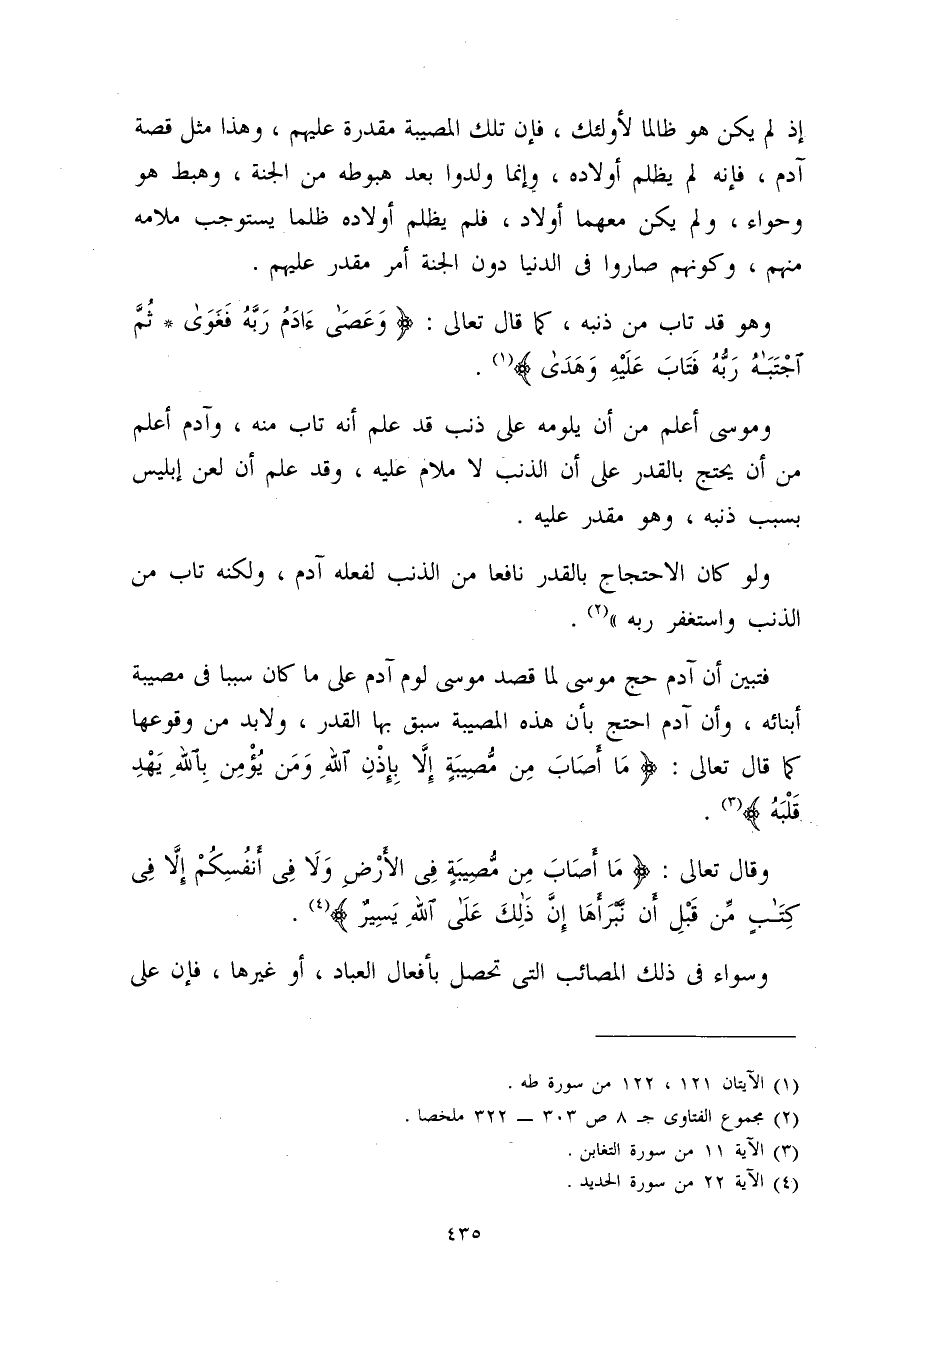 إذ لم يكن هو ظالما لأولئك ، فإن تلك المصيبة مقدرة عليهم ، وهذا مثل قصة
آدم ، فإنه لم يظلم أولاده ، وإنما ولدوا بعد هبوطه من الجنة ، وهبط هو
وحواء ، ولم يكن معهما أولاد ، فلم يظلم أولاده ظلما يستوجب ملامه
منهم ، وكونهم صاروا فى الدنيا دون الجنة أمر مقدر عليهم .
وهو قد تاب من ذنبه ، كما قال تعالى : ﴿ وَعَصَىٰ ءَادَمُ رَبَّهُ فَغَوَىٰ * ثُمَّ
ٱجْتَبَـٰهُ رَبُّهُ فَتَابَ عَلَيْهِ وَهَدَىٰ ﴾(١) .
وموسى أعلم من أن يلومه على ذنب قد علم أنه تاب منه ، وآدم أعلم
من أن يحتج بالقدر على أن الذنب لا ملام عليه ، وقد علم أن لعن إبليس
بسبب ذنبه ، وهو مقدر عليه .
ولو كان الاحتجاج بالقدر نافعا من الذنب لفعله آدم ، ولكنه تاب من
الذنب واستغفر ربه »(٢) .
فتبين أن آدم حج موسى لما قصد موسى لوم آدم على ما كان سببا فى مصيبة
أبنائه ، وأن آدم احتج بأن هذه المصيبة سبق بها القدر ، ولابد من وقوعها
كما قال تعالى : ﴿ مَا أَصَابَ مِن مُّصِيبَةٍ إِلَّا بِإِذْنِ ٱللَّهِ وَمَن يُؤْمِن بِٱللَّهِ يَهْدِ
قَلْبَهُ ﴾(٣) .
وقال تعالى : ﴿ مَا أَصَابَ مِن مُّصِيبَةٍ فِى الأَرْضِ وَلَا فِى أَنفُسِكُمْ إِلَّا فِى
كِتَـٰبٍ مِّن قَبْلِ أَن نَّبْرَأَهَا إِنَّ ذَٰلِكَ عَلَى ٱللَّهِ يَسِيرٌ ﴾(٤) .
وسواء فى ذلك المصائب التى تحصل بأفعال العباد ، أو غيرها ، فإن على
(١) الآيتان ١٢١ ، ١٢٢ من سورة طه .
(٢) مجموع الفتاوى جـ ٨ ص ٣٠٣ ــ ٣٢٢ ملخصا .
(٣) الآية ١١ من سورة التغابن .
(٤) الآية ٢٢ من سورة الحديد .
٤٣٥